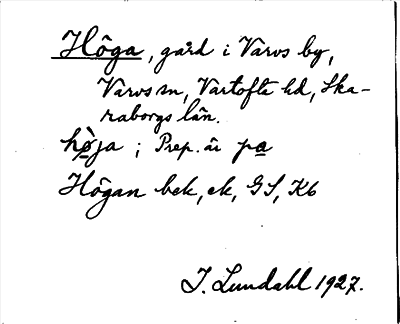 Höga, gård i Varvs by,
Varvs sn, Vartofta hd, Ska-
raborgs län.
hø̀ja ; Prep. är pa
Högan bek, ek, GS, Kb
I. Lundahl 1927.